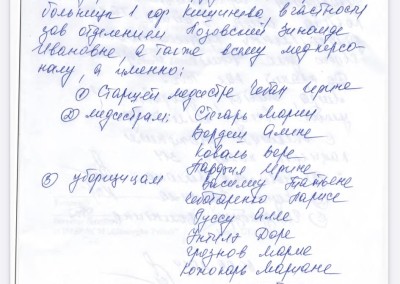 больница 1 гор Кишинева, в частности
зав отделением Лозовский Зинаиде
Ивановне, а также всему медперсо-
налу, а именно:
① Старшей медсестре Чебан Ирине
② медсестрам: Стегарь Марии
Бордеш Алине
Коваль Вере
Нардыя Ирине
③ уборщицам Василиу Татьяне
Чеботаренко Ларисе
Руссу Алле
Доре
Грезнов Марие
Кожокарь Мариане